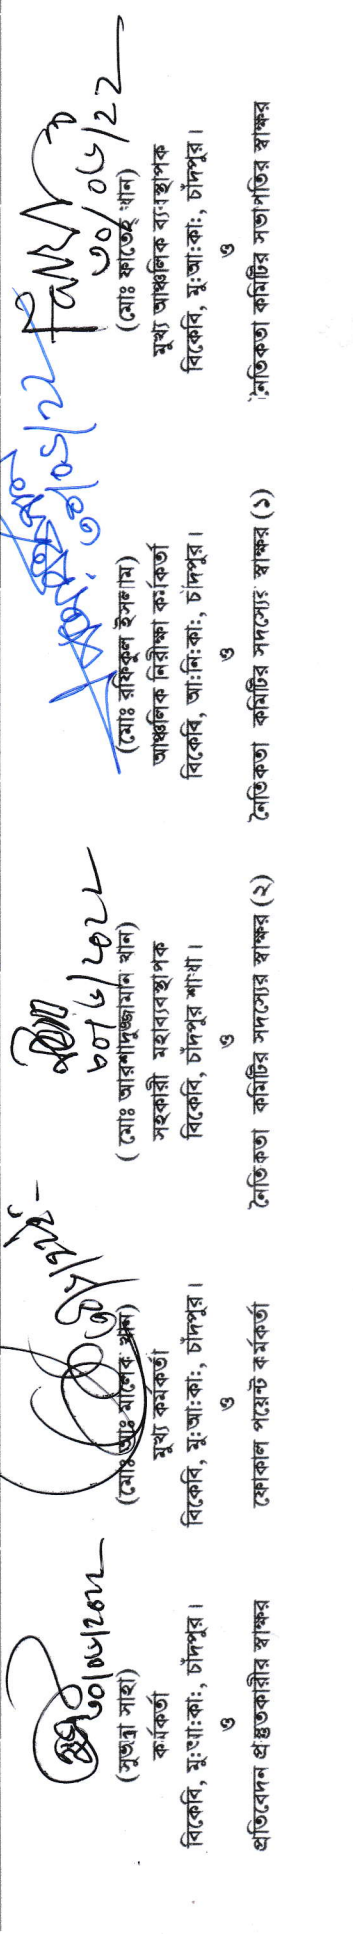 ৩০/০৬/২০২২
(সুভদ্রা সাহা)
কর্মকর্তা
বিকেবি, মু:আ:কা:, চাঁদপুর।
ও
প্রতিবেদন প্রস্তুতকারীর স্বাক্ষর
(মোঃ আঃ মালেক খান)
মূখ্য কর্মকর্তা
বিকেবি, মু:আ:কা:, চাঁদপুর।
ও
ফোকাল পয়েন্ট কর্মকর্তা
৩০/৬/২০২২
( মোঃ আরশাদুজ্জামান খান)
সহকারী মহাব্যবস্থাপক
বিকেবি, চাঁদপুর শাখা।
ও
নৈতিকতা কমিটির সদস্যের স্বাক্ষর (২)
৩০/০৬/২২
(মোঃ রফিকুল ইসলাম)
আঞ্চলিক নিরীক্ষা কর্মকর্তা
বিকেবি, আ:নি:কা:, চাঁদপুর।
ও
নৈতিকতা কমিটির সদস্যের স্বাক্ষর (১)
৩০/০৬/২২
(মোঃ ফাতেহ খান)
মুখ্য আঞ্চলিক ব্যবস্থাপক
বিকেবি, মু:আ:কা:, চাঁদপুর।
ও
নৈতিকতা কমিটির সভাপতির স্বাক্ষর